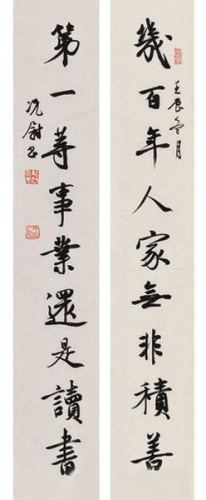 幾百年人家無非積善
壬辰冬月
第一等事業還是讀書
沈尉